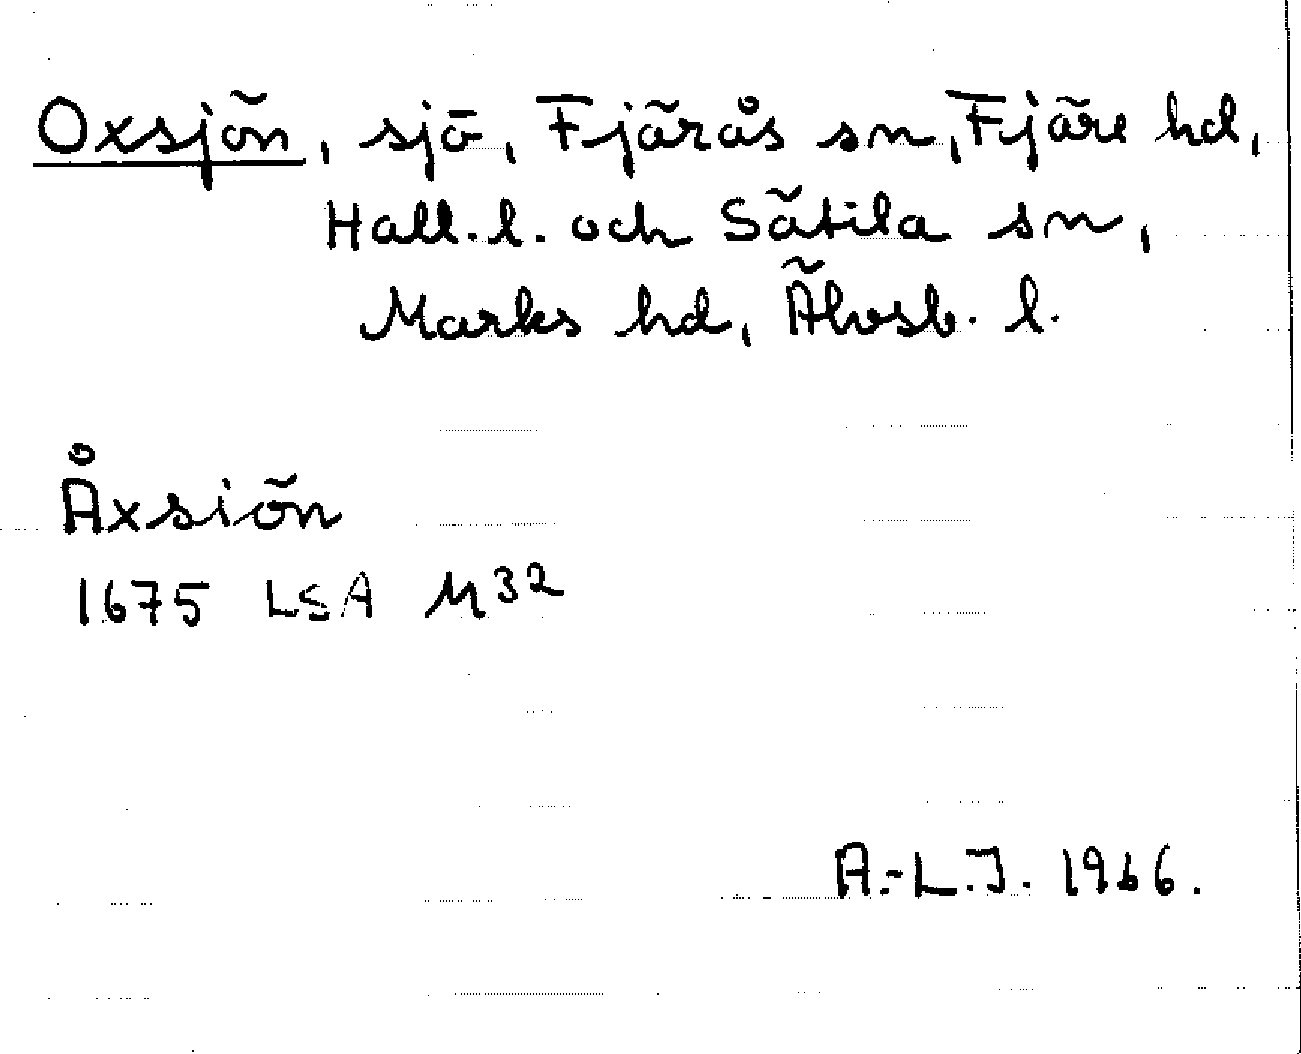 Oxsjön, sjö, Fjärås sn, Fjäre hd,
Hall. l. och Sätila sn,
Marks hd, Älvsb. l.
Åxsiön
1675 LSA M32
A.-L.J. 1966.